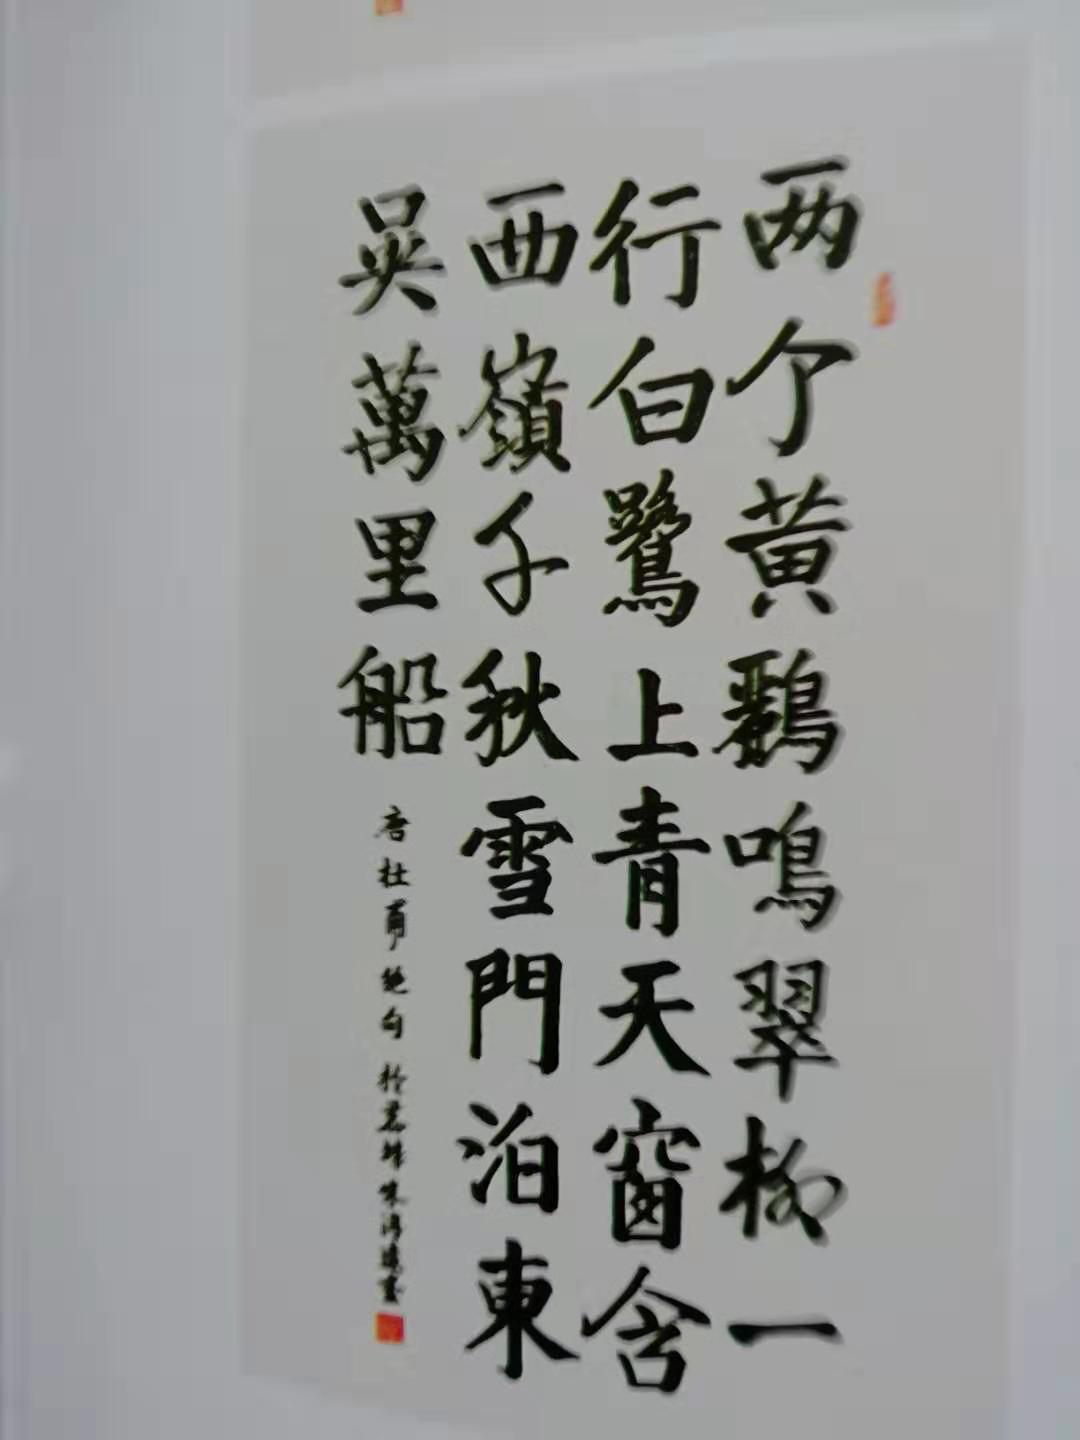 两个黄鸝鳴翠柳一
行白鷺上青天窗含
西嶺千秋雪門泊東
吴萬里船
唐杜甫絶句